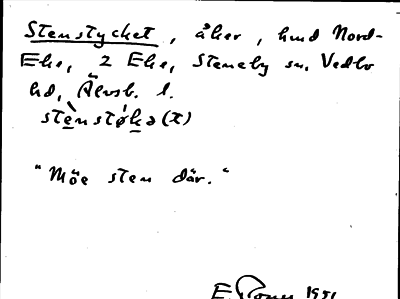 Stenstycket, åker, hmd Nord-
Eke, 2 Eke, Steneby sn, Vedbo
hd, Älvsb. l.
stènstøkə(t)
"Möe sten där."
E. 1951